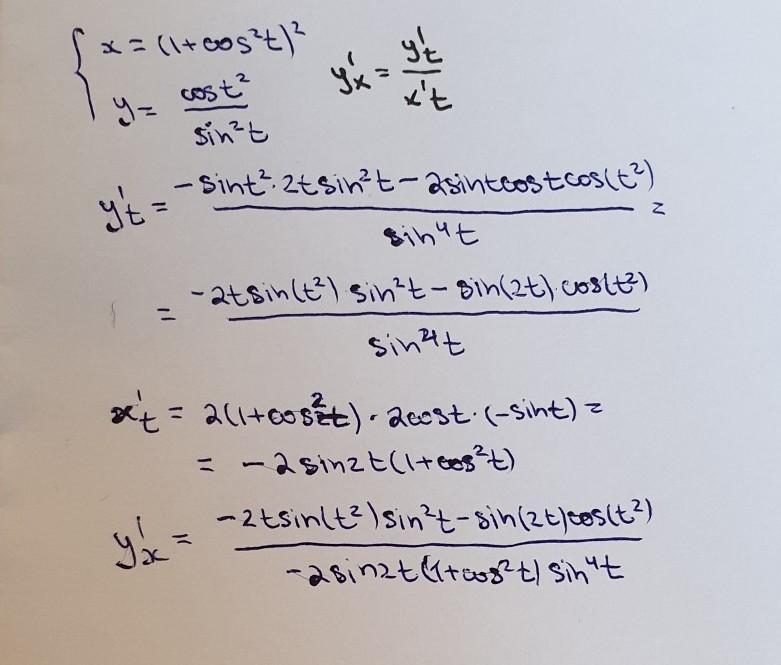 { x = (1+cos²t)²
y = cost² / sin²t
y'x = y't / x't
y't = (-sint²·2tsin²t - 2sintcostcos(t²)) / sin⁴t =
= (-2tsin(t²) sin²t - sin(2t)·cos(t²)) / sin⁴t
x't = 2(1+cos²t)·2cost·(-sint) =
= -2sin2t(1+cos²t)
y'x = (-2tsin(t²)sin²t-sin(2t)cos(t²)) / (-2sin2t(1+cos²t) sin⁴t)